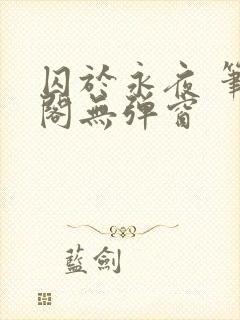 囚於永夜 筆
閣無彈窗
藍劍